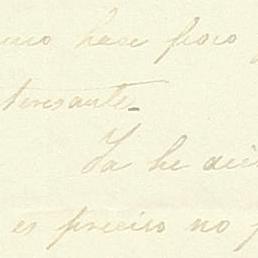 hace poco
teresante_
Ya he dic
es preciso no p